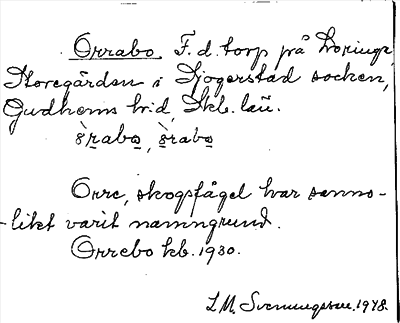 Orrabo. F. d. torp på Loringa
Storegården i Djogerstad socken,
Gudhems hrd, Skb. län.
8̀rabo, 8̀rabo
Orre, skogsfågel har sanno-
-likt varit namngrund.
Orrebo kb. 1930.
L. M. Svenungsson. 1948.